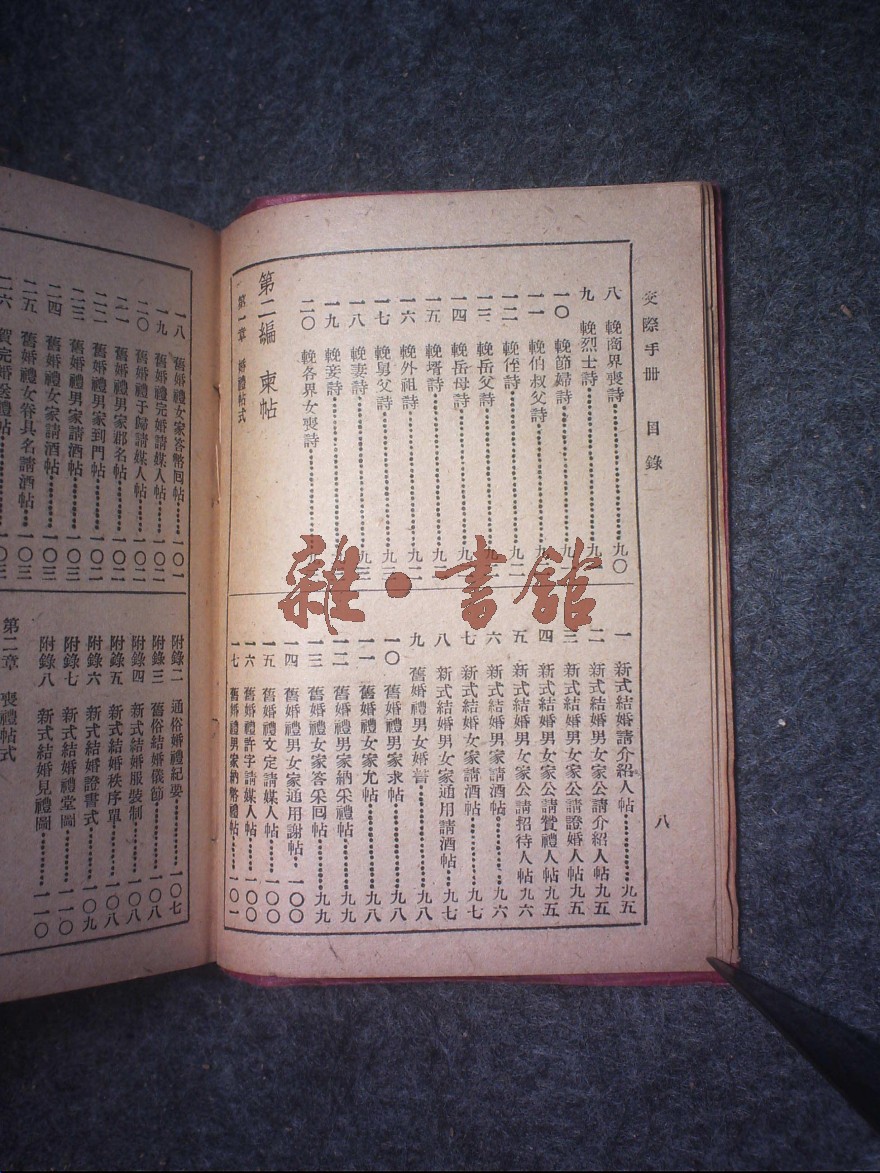 交際手冊　目錄
八
八　輓商界喪詩……九〇
九　輓烈士詩……九
一〇　輓節婦詩……九
一一　輓伯叔父詩……九
一二　輓侄詩……九二
一三　輓岳父詩……九二
一四　輓岳母詩……九二
一五　輓壻詩……九二
一六　輓外祖詩……九二
一七　輓舅父詩……九三
一八　輓妻詩……九三
一九　輓妾詩……九
二〇　輓各界女喪詩……九
第二編　柬帖
第一章　婚禮帖式
一　新式結婚請介紹人帖……九五
二　新式結婚男女家公請介紹人帖九五
三　新式結婚男女家公請證婚人帖九五
四　新式結婚男女家公請贊禮人帖九五
五　新式結婚男女家公請招待人帖九六
六　新式結婚男家請酒帖……九六
七　新式結婚女家請酒帖……九七
八　新式結婚男女家通用請酒帖…九七
九　舊婚禮男女婚書……九八
一〇　舊婚禮男家求帖……九八
一一　舊婚禮女家允帖……九八
一二　舊婚禮男家納采禮帖……九九
一三　舊婚禮女家答采回帖……九九
一四　舊婚禮男女家通用謝帖…一〇〇
一五　舊婚禮文定請媒人帖……一〇〇
一六　舊婚禮許字請媒人帖……一〇〇
一七　舊婚禮男家納幣禮帖……一〇一
一八　舊婚禮女家答幣回帖……一〇一
一九　舊婚禮完婚請媒人帖……一〇二
二〇　舊婚禮于歸請媒人帖……一〇二
二一　舊婚禮男家郡名帖……一〇二
二二　舊婚禮男家到門帖……一〇二
二三　舊婚禮男家請酒帖……一〇三
二四　舊婚禮女家請酒帖……一〇三
二五　舊婚禮女眷具名請酒帖…一〇三
二六　賀完婚送禮帖……一〇三
附錄二　通俗婚禮紀要……一〇七
附錄三　舊俗結婚儀節……一〇八
附錄四　新式結婚服裝制……一〇八
附錄五　新式結婚秩序單……一〇八
附錄六　新式結婚證書式……一〇九
附錄七　新式結婚禮堂圖……一一〇
附錄八　新式結婚見禮圖……一一〇
第二章　喪禮帖式
雜·書館